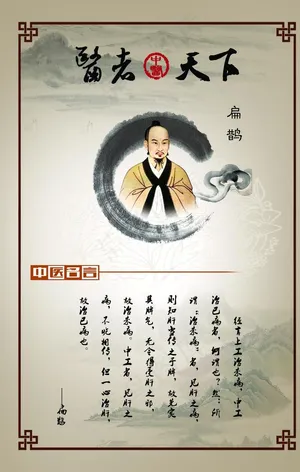 醫者天下
扁鹊
中医名言
经言上工治未病,中工
治已病者,何谓也?然:所
谓:治未病:者,见肝之病,
则知肝当传之于脾,故先实
其脾气,无令得受肝之邪,
故治未病。中工者,见肝之
病,不晓相传,但一心治肝,
故治已病也。
——扁鹊